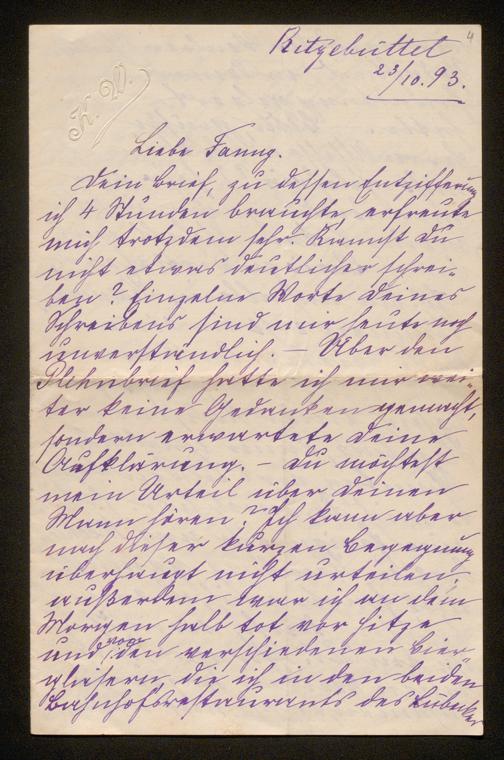 4
Ritzebüttel
23/10. 93.
K. W.
Liebe Fanny.
Dein Brief, zu dessen Entzifferung
ich 4 Stunden brauchte, erfreute
mich trotzdem sehr. Kannst Du
nicht etwas deutlicher schrei-
ben? Einzelne Worte Deines
Schreibens sind mir heute noch
unverständlich. — Über den
hatte ich mir wei-
ter keine Gedanken gemacht,
sondern erwartete Deine
Aufklärung. — Du möchtest
mein Urteil über Deinen
Mann hören? Ich kann aber
nach dieser kurzen Begegnung
überhaupt nicht urteilen,
außerdem war ich an dem
Morgen halb tot vor Hitze
und von den verschiedenen Bier-
gläsern, die ich in den beiden
Bahnhofsrestaurants des Lübecker